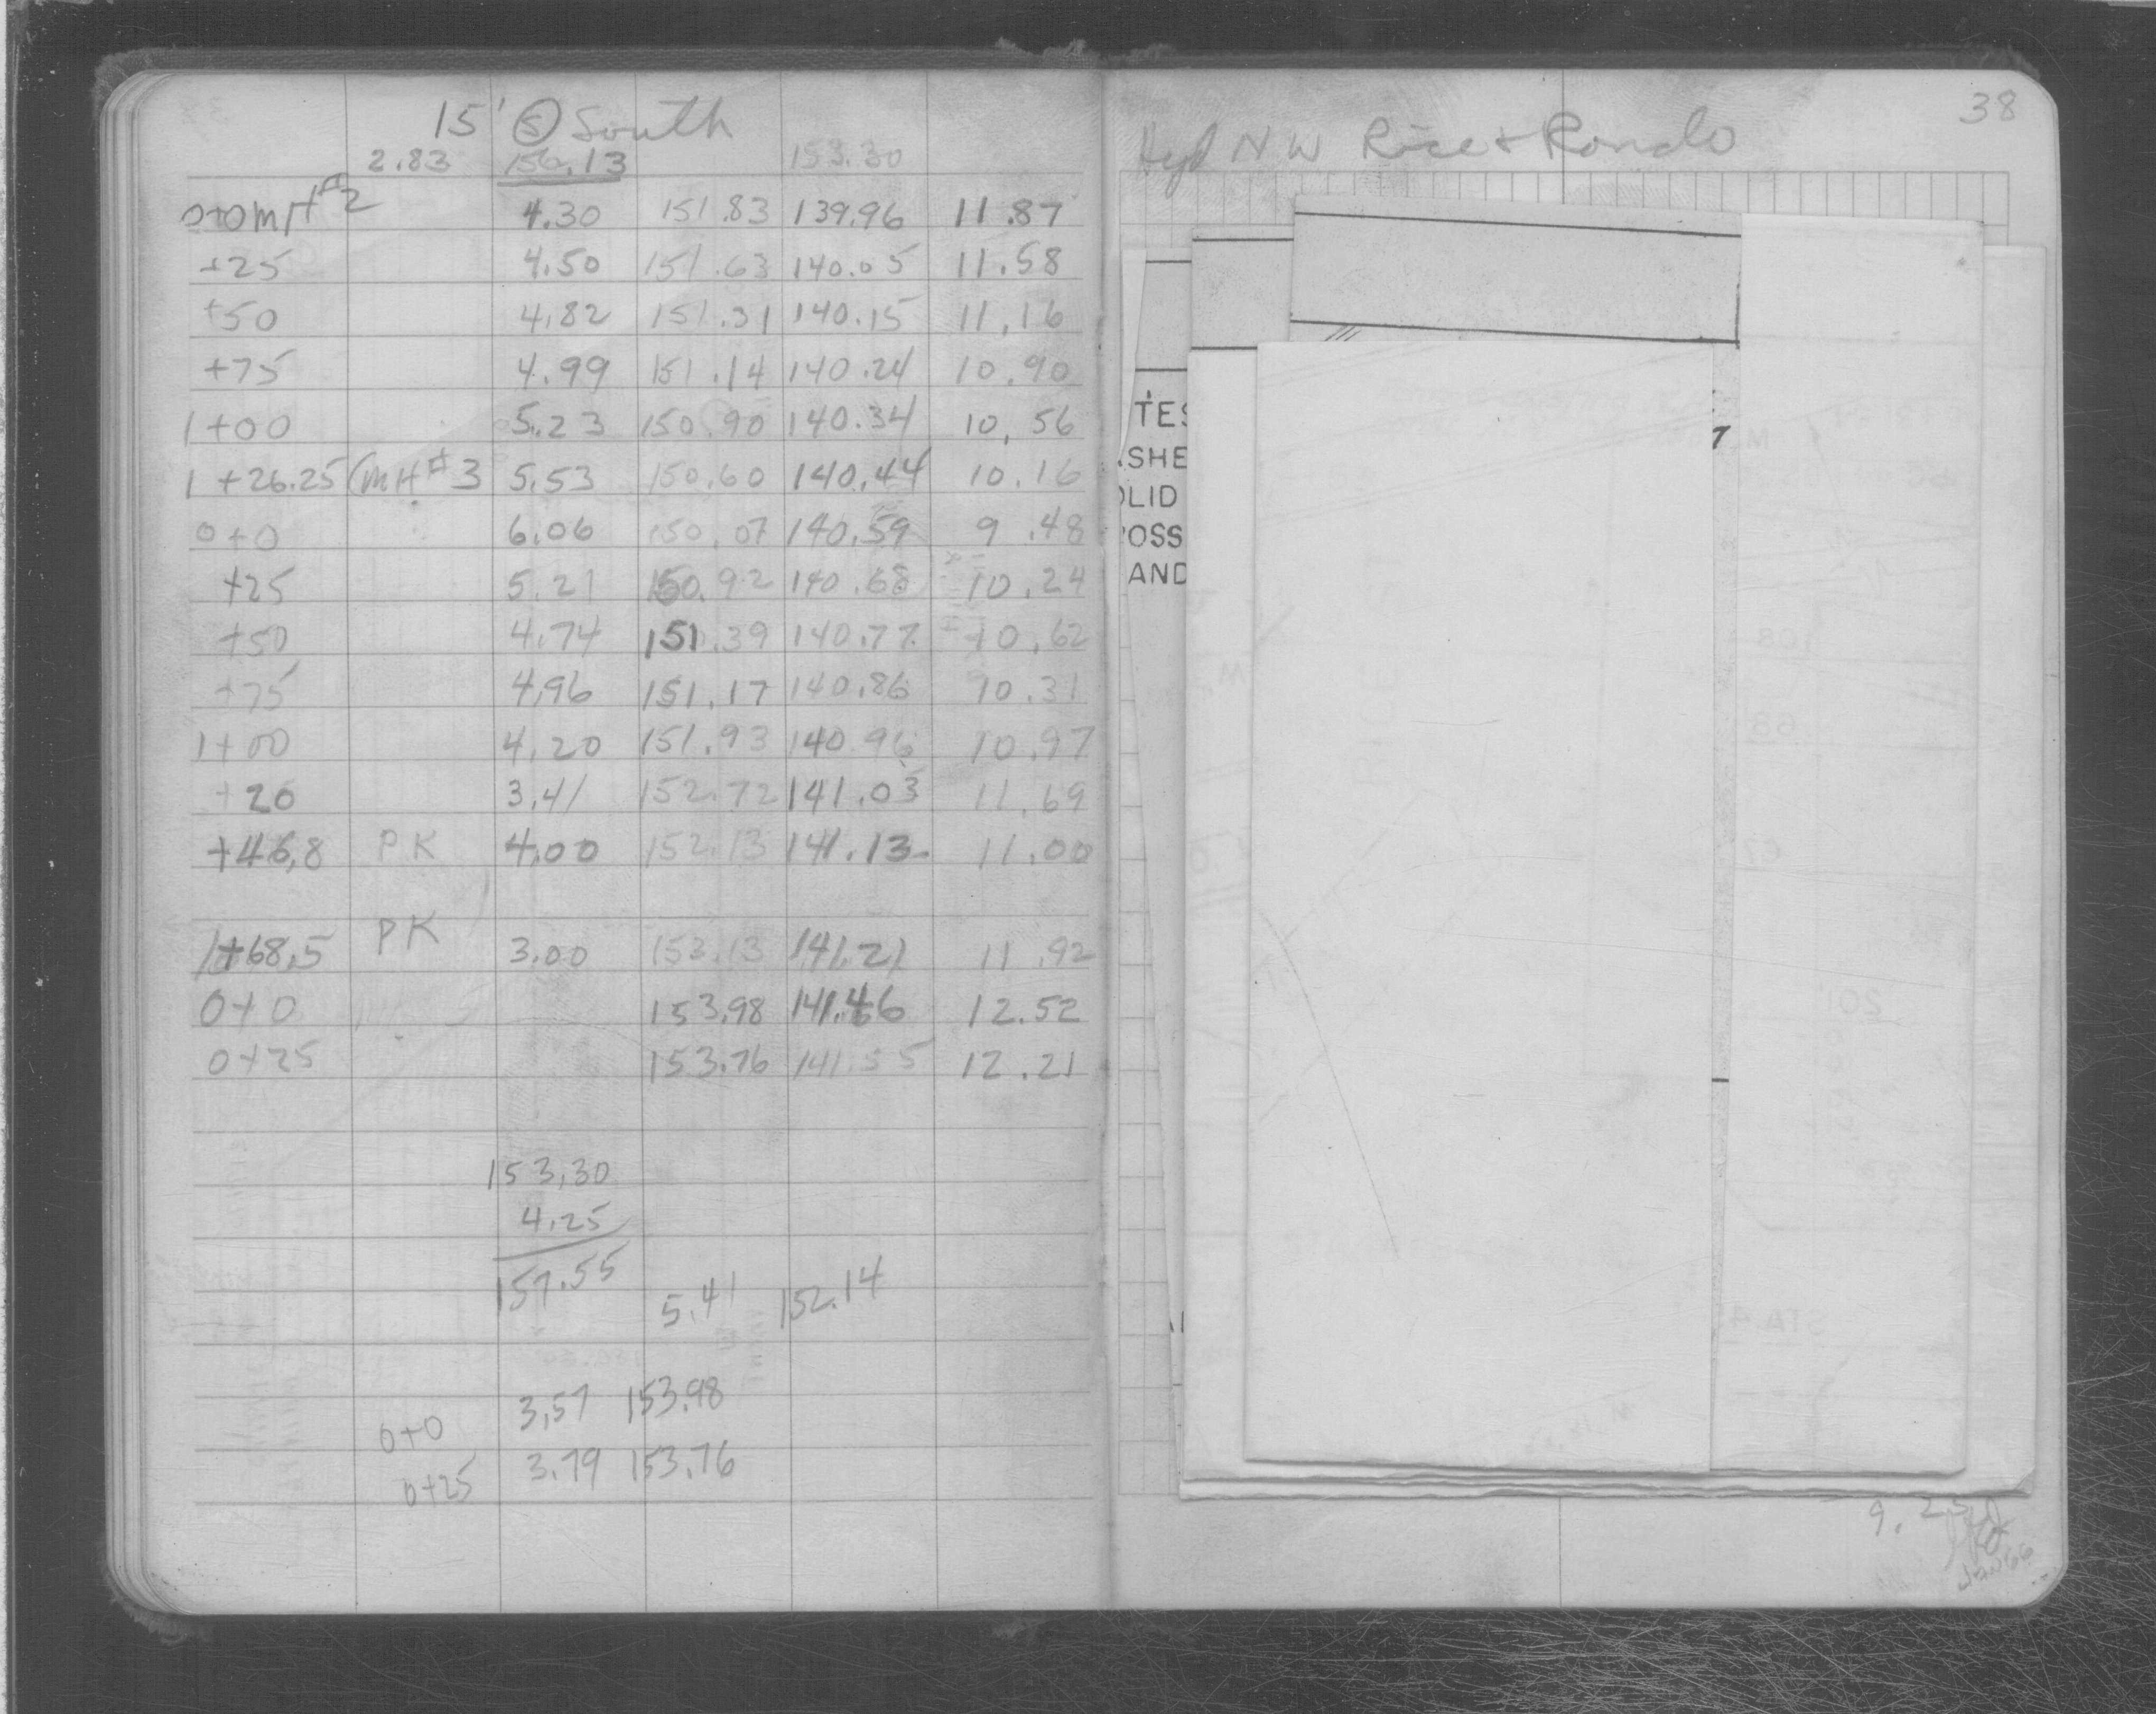 15' Ⓢ South
2.83 156.13 153.30
0+0 MH #2 4.30 151.83 139.96 11.87
+25 4.50 151.63 140.05 11.58
+50 4.82 151.31 140.15 11.16
+75 4.99 151.14 140.24 10.90
1+00 5.23 150.90 140.34 10.56
1+26.25 (MH #3 5.53 150.60 140.44 10.16
0+0 6.06 150.07 140.59 9.48
+25 5.21 150.92 140.68 10.24
+50 4.74 151.39 140.77 10.62
+75 4.96 151.17 140.86 10.31
1+00 4.20 151.93 140.96 10.97
+20 3.41 152.72 141.03 11.69
+46.8 PK 4.00 152.13 141.13 11.00
1+68.5 PK 3.00 153.13 141.21 11.92
0+0 153.98 141.46 12.52
0+25 153.76 141.55 12.21
153.30
4.25
157.55 5.41 152.14
0+0 3.57 153.98
0+25 3.79 153.76
38
Hyd NW Rice + Rondo
TES
SHE
OLID
OSS
AND